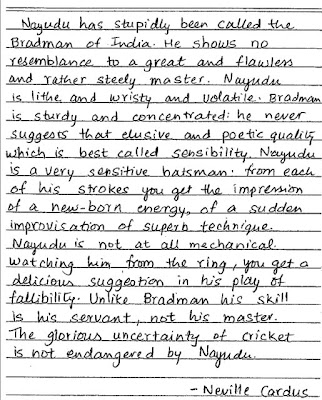 Nayudu has stupidly been called the
Bradman of India. He shows no
resemblance to a great and flawless
and rather steely master. Nayudu
is lithe and wristy and volatile. Bradman
is sturdy and concentrated: he never
suggests that elusive and poetic quality
which is best called sensibility. Nayudu
is a very sensitive batsman: from each
of his strokes you get the impression
of a new-born energy, of a sudden
improvisation of superb technique.
Nayudu is not at all mechanical.
Watching him from the ring, you get a
delicious suggestion in his play of
fallibility. Unlike Bradman his skill
is his servant, not his master.
The glorious uncertainty of cricket
is not endangered by Nayudu.
- Neville Cardus